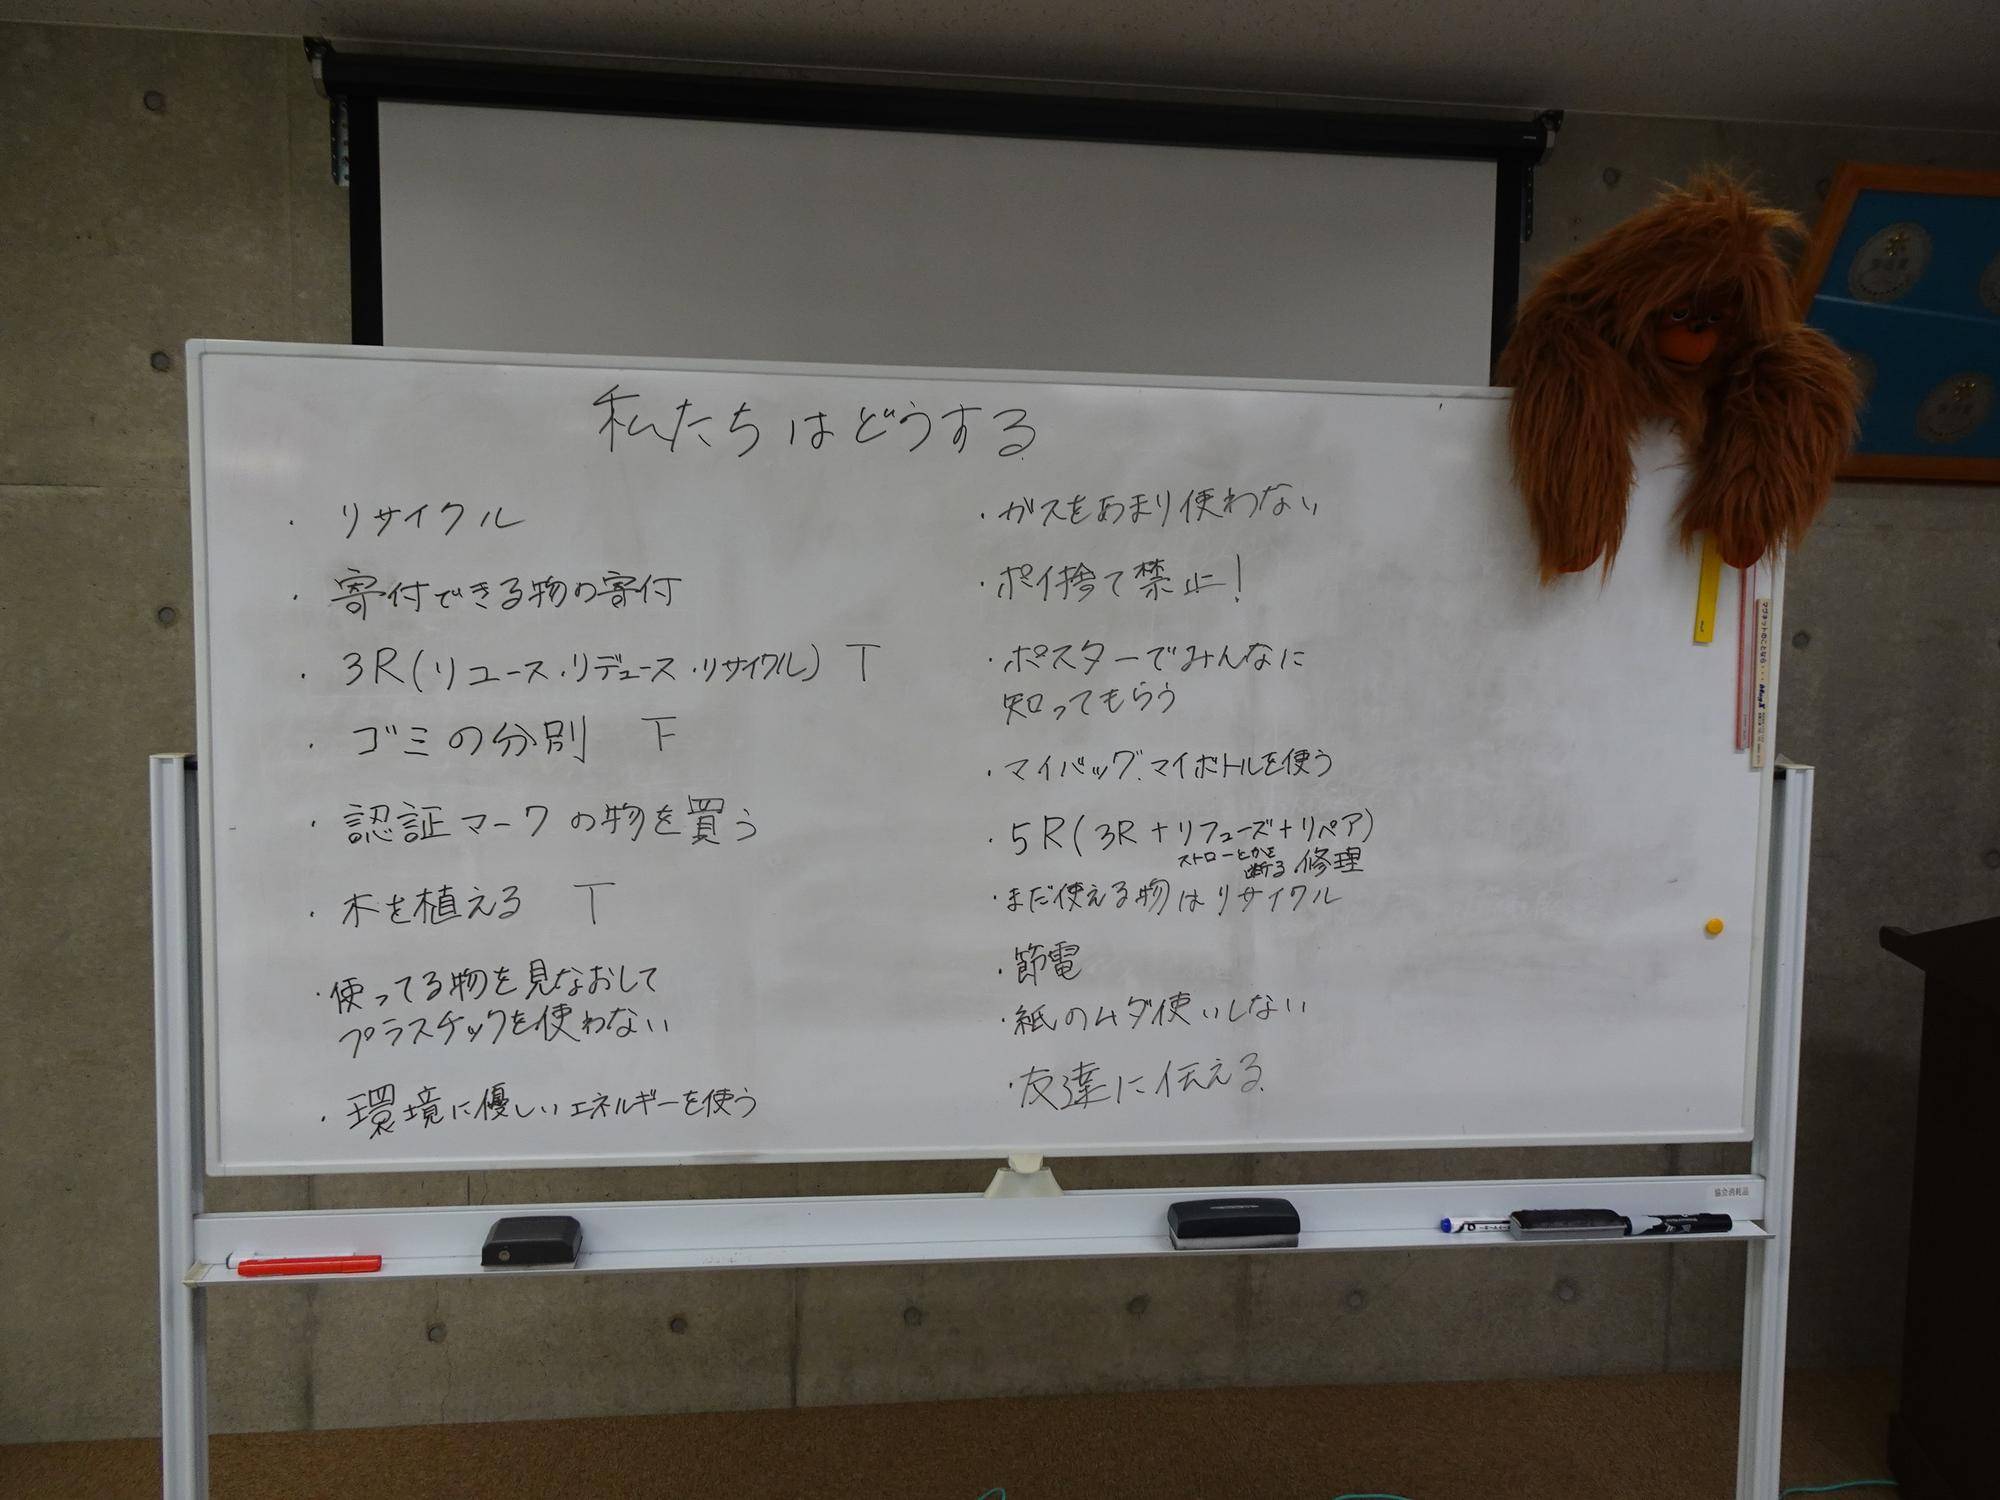 私たちはどうする
・リサイクル
・寄付できる物の寄付
・3R(リユース・リデュース・リサイクル) T
・ゴミの分別 下
・認証マークの物を買う
・木を植える T
・使ってる物を見なおして
プラスチックを使わない
・環境に優しいエネルギーを使う
・ガスをあまり使わない
・ポイ捨て禁止!
・ポスターでみんなに
知ってもらう
・マイバッグ、マイボトルを使う
・5R(3R+リフューズ+リペア)
ストローとかを
断る 修理
・まだ使える物はリサイクル
・節電
・紙のムダ使いしない
・友達に伝える
協会消耗品